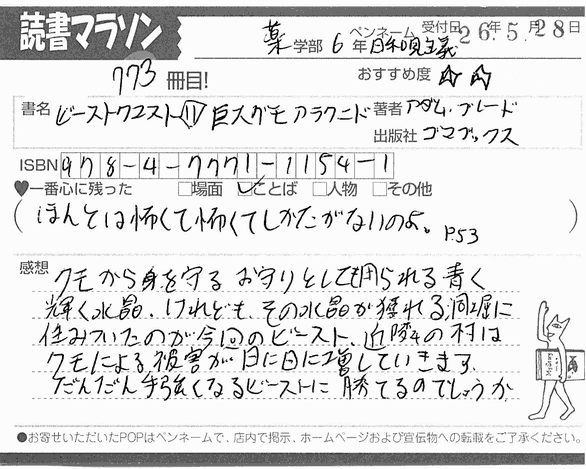 読書マラソン
薬学部6年 ペンネーム 日和見主義 受付日 26年5月28日
773冊目! おすすめ度 ☆☆
書名 ビーストクエスト⑪ 巨大グモアラクニド 著者 アダム・ブレード
出版社 ゴマブックス
ISBN 978-4-7771-1154-1
♥一番心に残った □場面 ☑ことば □人物 □その他
(ほんとは怖くて怖くてしかたがないのよ。P.53)
感想 クモから身を守るお守りとしても用いられる青く
輝く水晶。けれども、その水晶が獲れる洞堀に
住みついたのが今回のビースト、近隣の村は
クモによる被害が日に日に増していきます。
だんだん手強くなるビーストに勝てるのでしょうか
●お寄せいただいたPOPはペンネームで、店内で掲示、ホームページおよび宣伝物への転載をご了承ください。